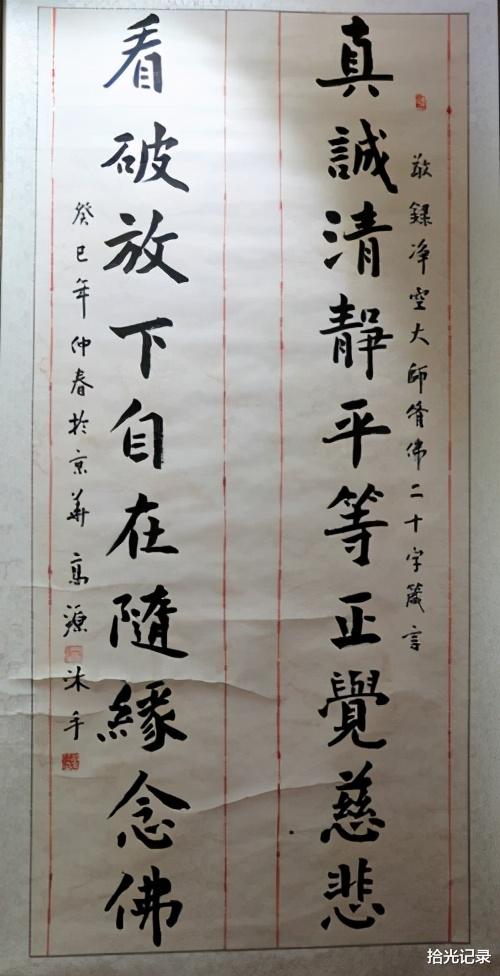 敬錄净空大師脩佛二十字箴言
真誠清靜平等正覺慈悲
看破放下自在隨緣念佛
癸巳年仲春於京華高源沐手
拾光记录